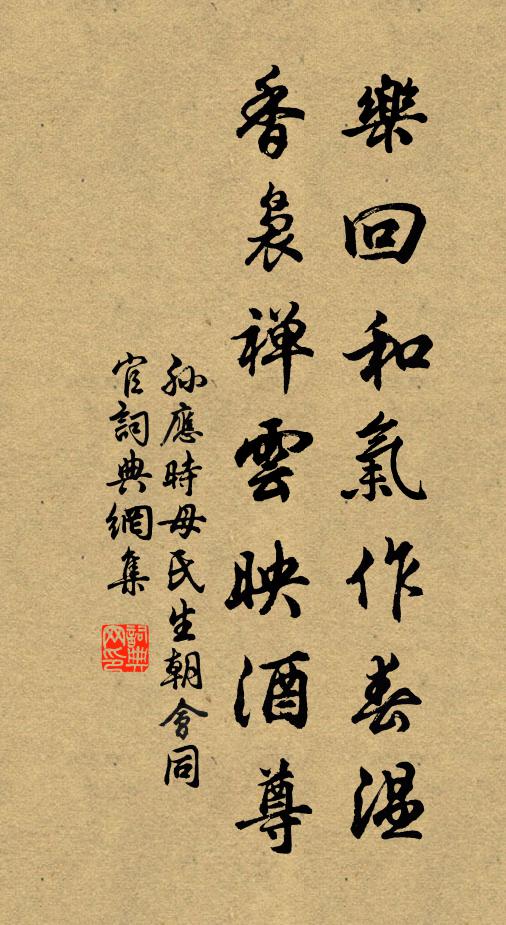 樂回和氣作春温
香裊禪雲映酒尊
孫應時母氏生朝會同
官詞典網集
詞典
网印